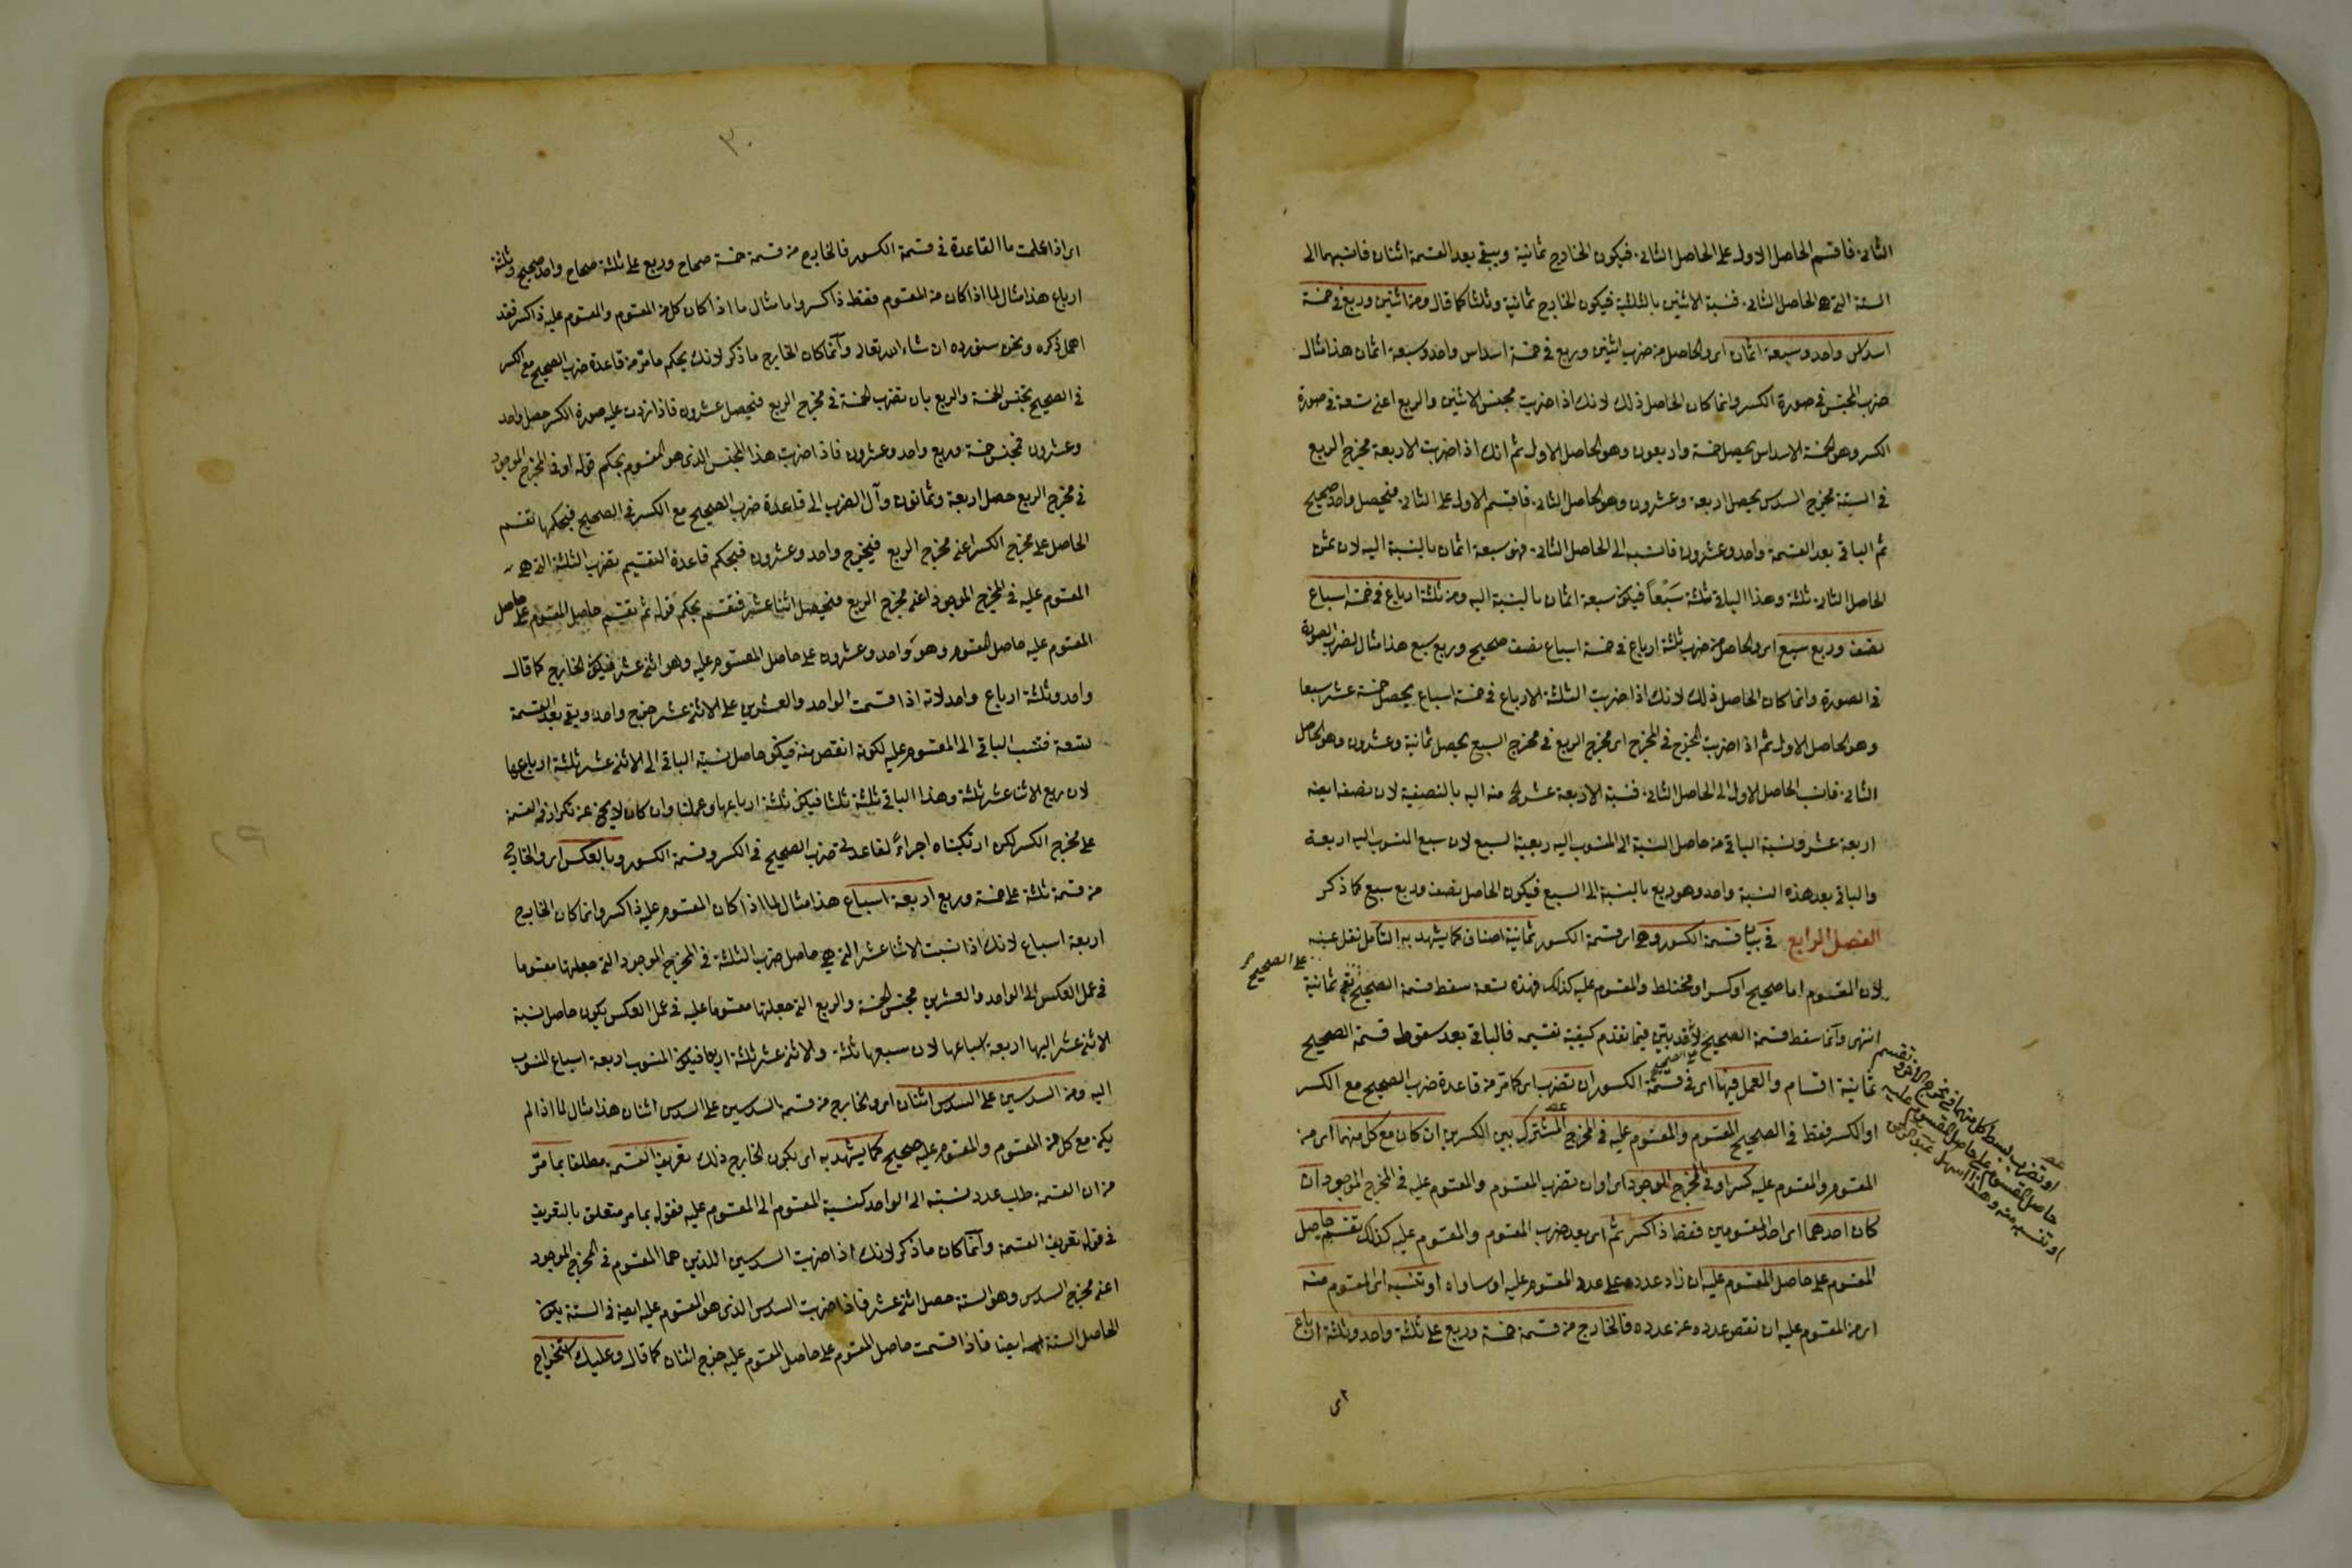 الثانى فاقسم الحاصل الاول على الحاصل الثانى فيكون الخارج ثمانية ويبقى بعد القسمة اثنان فانسبهما الى
الستة التى هى الحاصل الثانى فنسبة الاثنين بالثلثية فيكون الخارج ثمانية وثلثا كما قال ومن اثنين وربع فى خمسة
اسداس واحد وسبعة اثمان اى والحاصل من ضرب اثنين وربع فى خمسة اسداس واحد وسبعة اثمان هذا مثال
ضرب المجنس فى صورة الكسر وانما كان الحاصل ذلك لانك اذا ضربت مجنس الاثنين والربع اعنى تسعة فى صورة
الكسر وهو الخمسة الاسداس يحصل خمسة واربعون وهو الحاصل الاول ثم انك اذا ضربت الاربعة مخرج الربع
فى الستة مخرج السدس يحصل اربعة وعشرون وهو الحاصل الثانى فاقسم الاول على الثانى فيحصل واحد صحيح
ثم الباقى بعد القسمة واحد وعشرون فانسبه الى الحاصل الثانى فهو سبعة اثمان بالنسبة اليه لان ثمن
الحاصل الثانى ثلثة وهذا الباقى ثلثة سَبْعاً فيكون سبعة اثمان بالنسبة اليه ومن ثلثة ارباع فى خمسة اسباع
نصف وربع سبع اى والحاصل من ضرب ثلثة ارباع فى خمسة اسباع نصف صحيح وربع سبع هذا مثال لضرب الصورة
فى الصورة وانما كان الحاصل ذلك لانك اذا ضربت الثلثة الارباع فى خمسة اسباع يحصل خمسة عشر سبعا
وهو الحاصل الاول ثم اذا ضربت المخرج فى المخرج اى مخرج الربع فى مخرج السبع يحصل ثمانية وعشرون وهو الحاصل
الثانى فانسب الحاصل الاول الى الحاصل الثانى فنسبة الاربعة عشر منه اليه بالنصفية لان نصفه ايضا
اربعة عشر ونسبة الباقى من حاصل النسبة الى المنسوب اليه ربعية السبع لان سبع المنسوب اليه اربعة
والباقى بعد هذه النسبة واحد وهو ربع بالنسبة الى السبع فيكون الحاصل نصف وربع سبع كما ذكر
الفصل الرابع فى بيان قسمة الكسور وهى اى قسمة الكسور ثمانية اصناف كما يشهد به التأمل نقل عنه
على الصحيح
لان المقسوم اما صحيح او كسر او مختلط والمقسوم عليه كذلك فهذه تسعة سقط قسمة الصحيح بقى ثمانية
انتهى وانما سقط قسمة الصحيح لانه قد بين فيما تقدم كيفية تقسيمه فالباقى بعد سقوط قسمة الصحيح
على الصحيح
ثمانية اقسام والعمل فيها اى فى قسمة الكسور ان تضرب اى كما مر من قاعدة ضرب الصحيح مع الكسر
او الكسر فقط فى الصحيح المقسوم والمقسوم عليه فى المخرج المشترك بين الكسرين ان كان مع كل منهما اى من
المقسوم والمقسوم عليه كسر او فى المخرج الموجود اى او ان تضرب المقسوم والمقسوم عليه فى المخرج الموجود ان
كان احدهما اى احد المقسومين فقط ذا كسر ثم اى بعد ضرب المقسوم والمقسوم عليه كذلك تقسم حاصل
المقسوم على حاصل المقسوم عليه ان زاد عدده على عدد المقسوم عليه او ساواه او تنسبه اى المقسوم منه
اى من المقسوم عليه ان نقص عدده عن عدده فالخارج من قسمة خمسة وربع على ثلثة واحد وثلثة ارباع
او تضرب بسط كل منهما فى مخرج الاخر وتقسم
حاصل المقسوم على حاصل المقسوم عليه
او تنسبه منه وهذا اسهل
اى
٣٠
اى اذا علمت ما القاعدة فى قسمة الكسور فالخارج من قسمة خمسة صحاح وربع على ثلثة صحاح واحد صحيح وثلثة
ارباع هذا مثال لما اذا كان من المقسوم فقط ذا كسر واما مثال ما اذا كان كل من المقسوم والمقسوم عليه ذا كسر فقد
اهمل ذكره ونحن سنورده ان شاء الله تعالى وانما كان الخارج ما ذكر لانك بحكم ما مر من قاعدة ضرب الصحيح مع الكسر
فى الصحيح تجنس الخمسة والربع بان تضرب الخمسة فى مخرج الربع فيحصل عشرون فاذا زدت عليه صورة الكسر حصل واحد
وعشرون فمجنس خمسة وربع واحد وعشرون فاذا ضربت هذا المجنس الذى هو المقسوم بحكم قوله او فى المخرج الموجود
فى مخرج الربع حصل اربعة وثمانون وآل الضرب الى قاعدة ضرب الصحيح مع الكسر فى الصحيح فبحكمها تقسم
الحاصل على مخرج الكسر اعنى مخرج الربع فيخرج واحد وعشرون فبحكم قاعدة التقسيم تضرب الثلثة التى هى
المقسوم عليه فى المخرج الموجود اعنى مخرج الربع فيحصل اثنا عشر فتقسم بحكم قوله ثم تقسم حاصل المقسوم على حاصل
المقسوم عليه حاصل المقسوم وهو واحد وعشرون على حاصل المقسوم عليه وهو اثنى عشر فيكون الخارج كما قال
واحد وثلثة ارباع واحد لانه اذا قسمت الواحد والعشرين على الاثنى عشر خرج واحد وبقى بعد القسمة
تسعة فتنسب الباقى الى المقسوم عليه لكونه انقص منه فيكون حاصل نسبة الباقى الى الاثنى عشر ثلثة ارباعها
لان ربع الاثنا عشر ثلثة وهذا الباقى ثلثة ثلثا فيكون ثلثة ارباعها وعملنا وان كان لا يخ عن تكرار فى القسمة
على مخرج الكسر لكن ارتكبناه اجراءً لقاعدتى ضرب الصحيح فى الكسر وقسمة الكسور وبالعكس اى والخارج
من قسمة ثلثة على خمسة وربع اربعة اسباع هذا مثال لما اذا كان المقسوم عليه ذا كسر وانما كان الخارج
اربعة اسباع لانك اذا نسبت الاثنا عشر التى هى حاصل ضرب الثلثة فى المخرج الموجود التى جعلتها مقسوما
فى عمل العكس الى الواحد والعشرين مجنس الخمسة والربع التى جعلتها مقسوما عليه فى عمل العكس يكون حاصل نسبة
الاثنى عشر اليها اربعة اسباعها لان سبعها ثلثة والاثنى عشر ثلثة اربعا فيكون المنسوب اربعة اسباع المنسوب
اليه ومن السدسين على السدس اثنان اى والخارج من قسمة السدسين على السدس اثنان هذا مثال لما اذا لم
يكن مع كل من المقسوم والمقسوم عليه صحيح كما يشهد به اى بكون الخارج ذلك تعريف القسمة مطلقا بما مر
من ان القسمة طلب عدد نسبته الى الواحد كنسبة المقسوم الى المقسوم عليه فقوله بما مر متعلق بالتعريف
فى قوله تعريف القسمة وانما كان ما ذكر لانك اذا ضربت السدسين اللذين هما المقسوم فى المخرج الموجود
اعنى مخرج السدس وهو الستة حصل اثنى عشر فاذا ضربت السدس الذى هو المقسوم عليه ايضا فى الستة يكون
الحاصل الستة ايضا فاذا قسمت حاصل المقسوم على حاصل المقسوم عليه خرج اثنان كما قال وعليك استخراج
٢٩